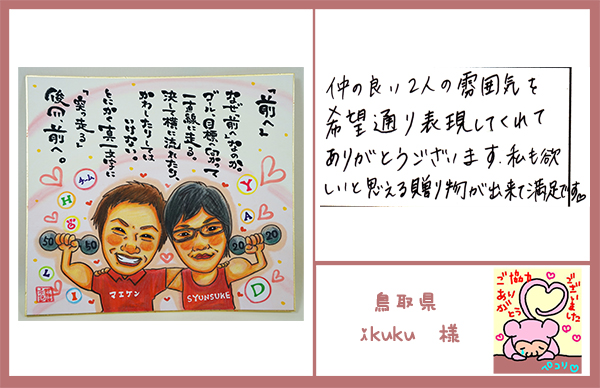 「前へ」
なぜ前へなのか
ゴール、目標に向かって
一直線に走る。
決して横に流れたり、
かわしたりしては
いけない。
とにかく真っ直ぐに
「突っ走る」
後（のち）前へ。
チーム
H
L
I
Y
A
D
50
50
20
20
マエケン
SYUNSUKE
仲の良い2人の雰囲気を
希望通り表現してくれて
ありがとうございます。私も欲
しいと思える贈り物が出来て満足です。
鳥取県
ikuku 様
ご協力
ありがとう
ございました
ペコリ